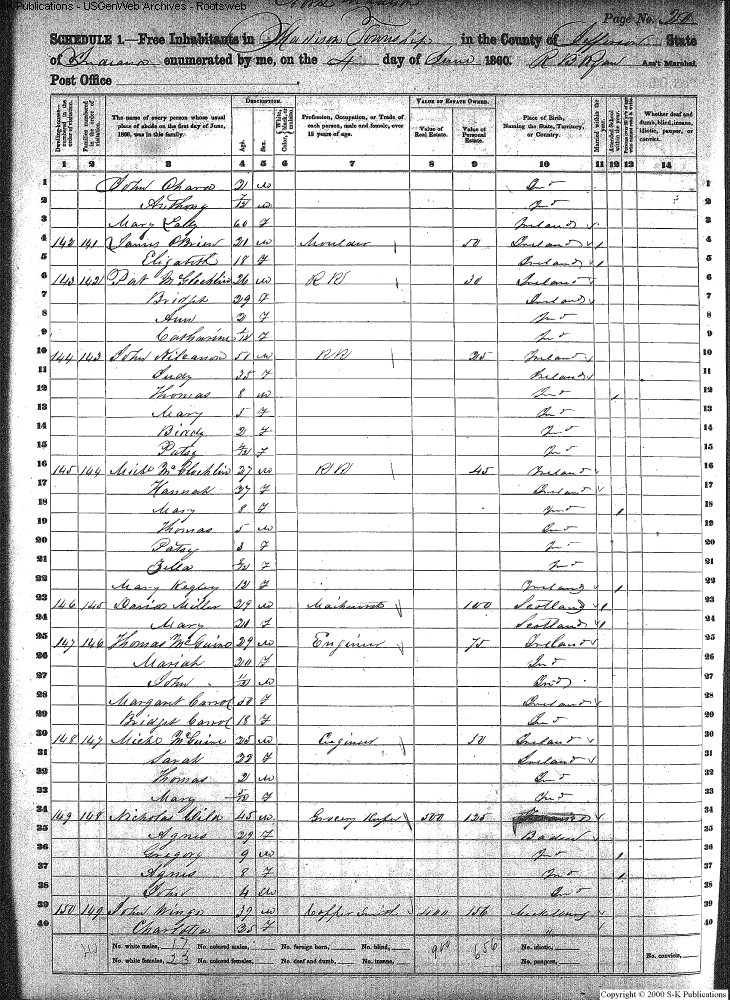 S-K Publications - USGenWeb Archives - Rootsweb
Page No. 20
SCHEDULE 1.—Free Inhabitants in Madison Township in the County of Jefferson State
of Indiana enumerated by me, on the 4 day of June 1860. R B Ryan Ass't Marshal.
Post Office
Dwelling-houses numbered in the order of visitation.
Families numbered in the order of visitation.
The name of every person whose usual place of abode on the first day of June, 1860, was in this family.
DESCRIPTION.
Age.
Sex.
Color, White, black, or mulatto.
Profession, Occupation, or Trade of each person, male and female, over 15 years of age.
VALUE OF ESTATE OWNED.
Value of Real Estate.
Value of Personal Estate.
Place of Birth, Naming the State, Territory, or Country.
Married within the year.
Attended School within the year.
Whether deaf and dumb, blind, insane, idiotic, pauper, or convict.
1 2 3 4 5 6 7 8 9 10 11 12 13 14
1 John Ohara 21 m Ind 1
2 Anthony 7/12 m Ind 2
3 Mary 60 f Ireland 3
4 142 141 James OBrien 21 m Moulder 50 Ireland / 4
5 Elizabeth 18 f Ireland / 5
6 143 142 Pat McGlochlin 26 m R R 30 Ireland 6
7 Bridget 29 f Ireland 7
8 Ann 2 f Ind 8
9 Catharine f Ind 9
10 144 143 John 51 m RR 25 Ireland 10
11 Judy 35 f Ireland 11
12 Thomas 8 m Ind / 12
13 Mary 5 f Ind 13
14 Biddy 2 f Ind 14
15 Patsy f Ind 15
16 145 144 Michl McGlochlin 27 m RR 45 Ireland 16
17 Hannah 27 f Ireland 17
18 Mary 8 f Ind / 18
19 Thomas 5 m Ind 19
20 Patsy 3 f Ind 20
21 Bella f Ind 21
22 Mary Kegley 12 f Ireland / 22
23 146 145 David Miller 29 m Machinist 100 Scotland / 23
24 Mary 21 f Scotland / 24
25 147 146 Thomas McGuire 29 m Engineer 75 Ireland 25
26 Mariah 20 f Ind 26
27 John 11/12 m Ind 27
28 Margaret Carrol 50 f Ireland 28
29 Bridget Carrol 18 f Ind 29
30 148 147 Michl McGuire 25 m Engineer 50 Ireland 30
31 Sarah 22 f Ireland 31
32 Thomas 2 m Ind 32
33 Mary f Ind 33
34 149 148 Nicholas Wild 45 m Grocery Keeper 500 125 34
35 Agnes 29 f Baden 35
36 Gregory 9 m Ind / 36
37 Agnes 8 f Ind / 37
38 John 4 m Ind 38
39 150 149 John Wingo 39 m Copper Smith 400 156 39
40 Charlotta 35 f " 40
No. white males, 17 No. colored males, No. foreign born, No. blind, 900 656 No. idiotic,
No. white females, 23 No. colored females, No. deaf and dumb, No. insane, No. paupers, No. convicts,
Copyright © 2000 S-K Publications